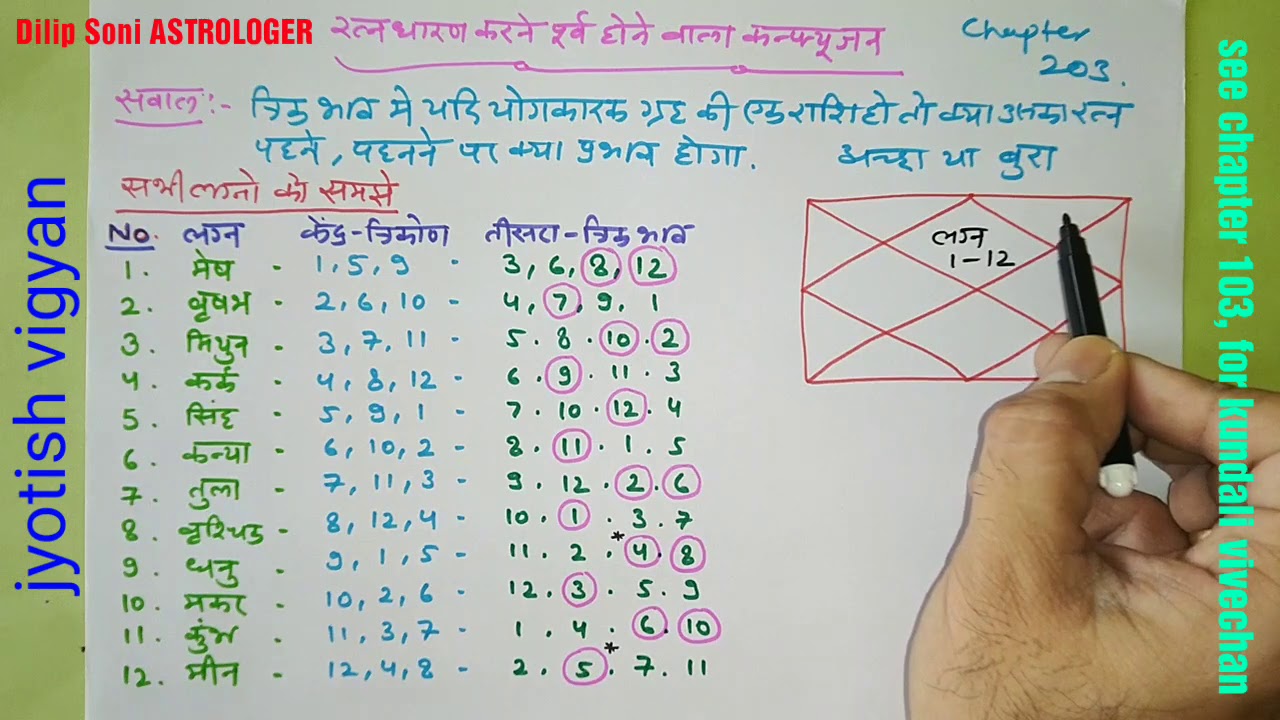 Dilip Soni ASTROLOGER
रत्न धारण करने पूर्व होने वाला कन्फ्यूजन
Chapter 203.
सवाल:- त्रिक भाव मे यदि योगकारक ग्रह की एक राशि हो तो क्या उसका रत्न
पहने, पहनने पर क्या प्रभाव होगा. अच्छा या बुरा
सभी लग्नो को समझे
No. लग्न केंद्र-त्रिकोण तीसरा-त्रिक भाव
1. मेष - 1, 5, 9 - 3, 6, 8, 12
2. वृषभ - 2, 6, 10 - 4, 7, 9, 1
3. मिथुन - 3, 7, 11 - 5. 8. 10. 2
4. कर्क - 4, 8, 12 - 6. 9. 11. 3
5. सिंह - 5, 9, 1 - 7. 10. 12. 4
6. कन्या - 6, 10, 2 - 8. 11. 1. 5
7. तुला - 7, 11, 3 - 9. 12. 2. 6
8. वृश्चिक - 8, 12, 4 - 10. 1. 3. 7
9. धनु - 9, 1, 5 - 11. 2. *4. 8
10. मकर - 10, 2, 6 - 12. 3. 5. 9
11. कुंभ - 11, 3, 7 - 1. 4. 6. 10
12. मीन - 12, 4, 8 - 2. 5.* 7. 11
लग्न
1-12
jyotish vigyan
see chapter 103, for kundali vivechan